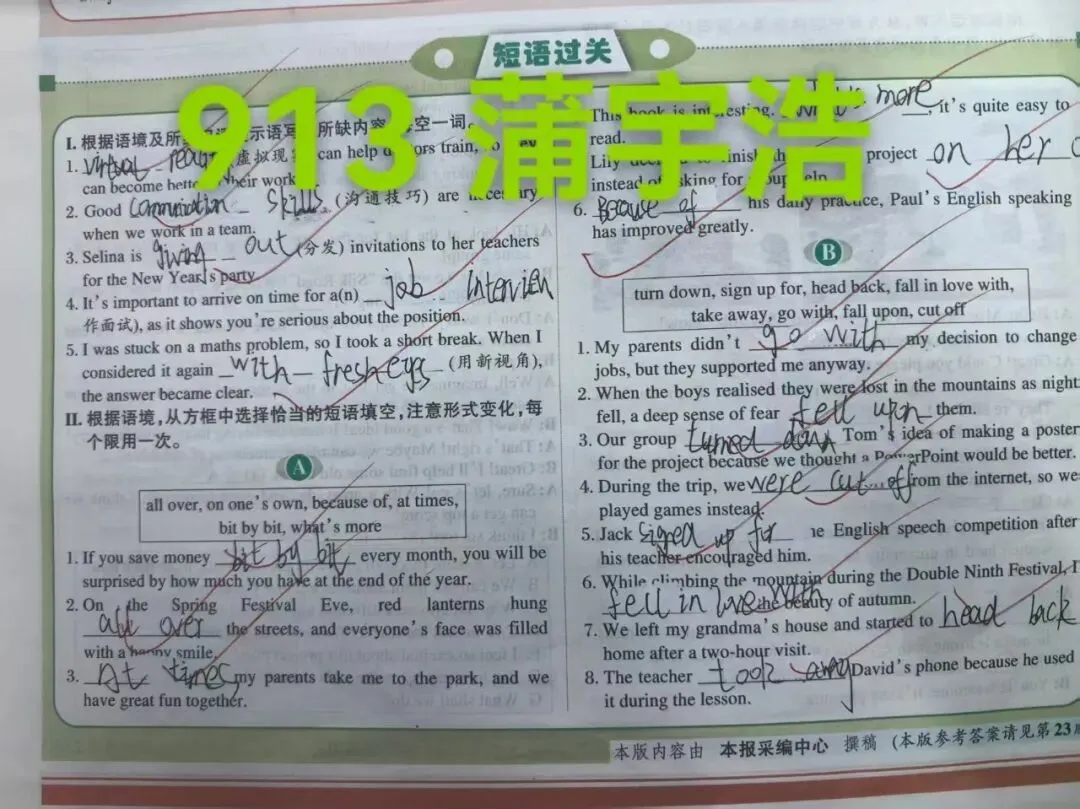 短语过关
913 蒲宇浩
I. 根据语境及所 示语写 所缺内容 每空一词。
1. virtual (虚拟现 can help d ors train, so they
can become bette their work
2. Good skills (沟通技巧) are necessary
when we work in a team.
3. Selina is giving out (分发) invitations to her teachers
for the New Year's party.
4. It's important to arrive on time for a(n) job
作面试), as it shows you're serious about the position.
5. I was stuck on a maths problem, so I took a short break. When I
considered it again with fresh eyes (用新视角),
the answer became clear.
II. 根据语境,从方框中选择恰当的短语填空,注意形式变化,每
个限用一次。
A
all over, on one's own, because of, at times,
bit by bit, what's more
1. If you save money bit by bit every month, you will be
surprised by how much you have at the end of the year.
2. On the Spring Festival Eve, red lanterns hung
all over the streets, and everyone's face was filled
with a happy smile.
3. At times my parents take me to the park, and we
have great fun together.
This book is interesting. more, it's quite easy to
read.
Lily project on her
instead of asking for group help.
6. Because of his daily practice, Paul's English speaking
has improved greatly.
B
turn down, sign up for, head back, fall in love with,
take away, go with, fall upon, cut off
1. My parents didn't go with my decision to change
jobs, but they supported me anyway.
2. When the boys realised they were lost in the mountains as night
fell, a deep sense of fear fell upon them.
3. Our group turned down Tom's idea of making a poster
for the project because we thought a PowerPoint would be better.
4. During the trip, we were cut off from the internet, so we
played games instead.
5. Jack signed up for he English speech competition after
his teacher encouraged him.
6. While climbing the mountain during the Double Ninth Festival, I
fell in love with the beauty of autumn.
7. We left my grandma's house and started to head back
home after a two-hour visit.
8. The teacher took away David's phone because he used
it during the lesson.
本版内容由 本报采编中心 撰稿 (本版参考答案请见第23版